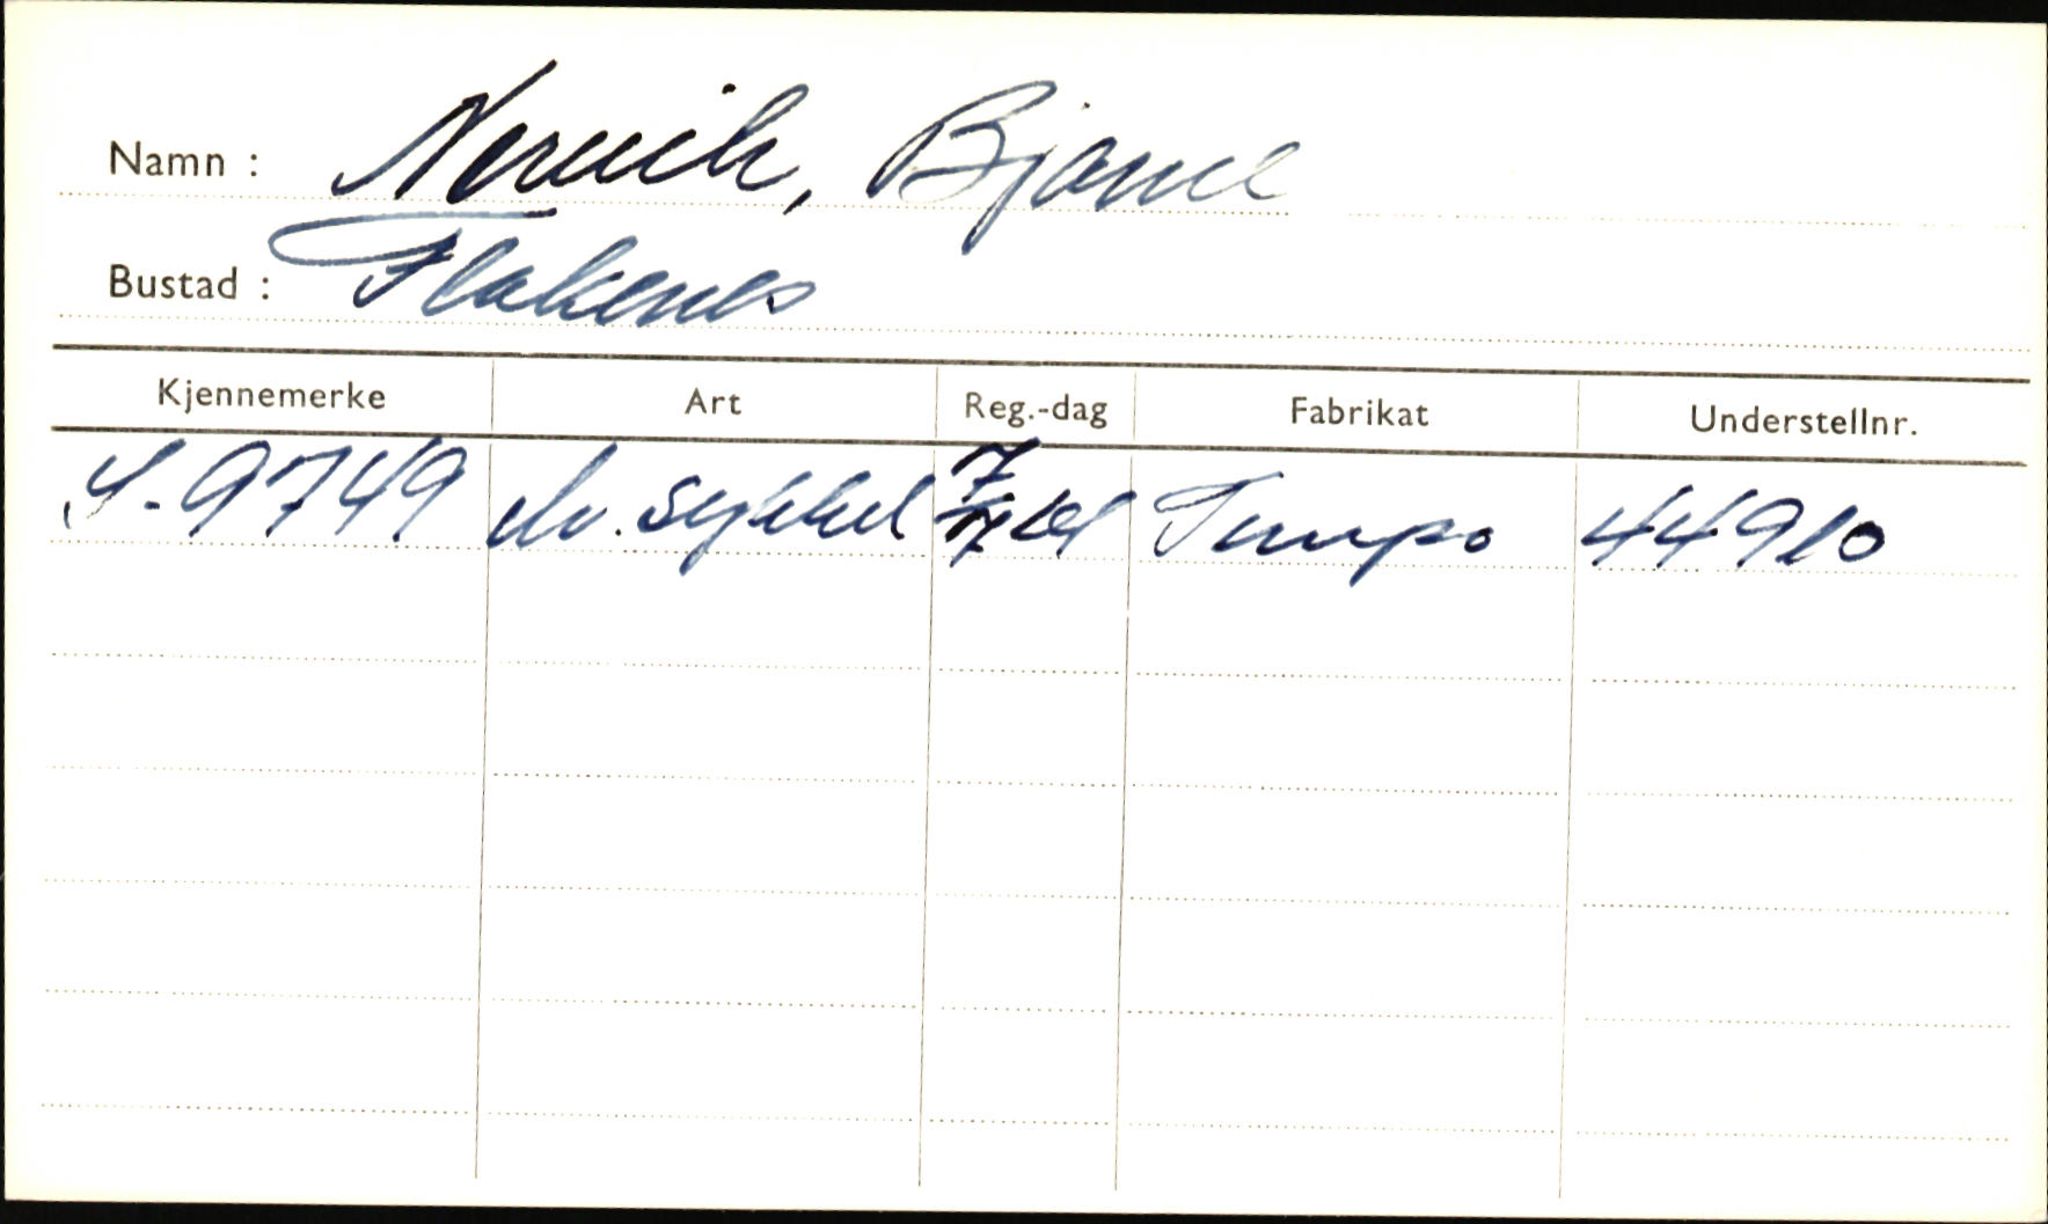 Namn : Nervik, Bjarne
Bustad : Flakenes
Kjennemerke Art Reg.-dag Fabrikat Understellnr.
S-9749 M. sykkel 7/7 61 Tempo 44910